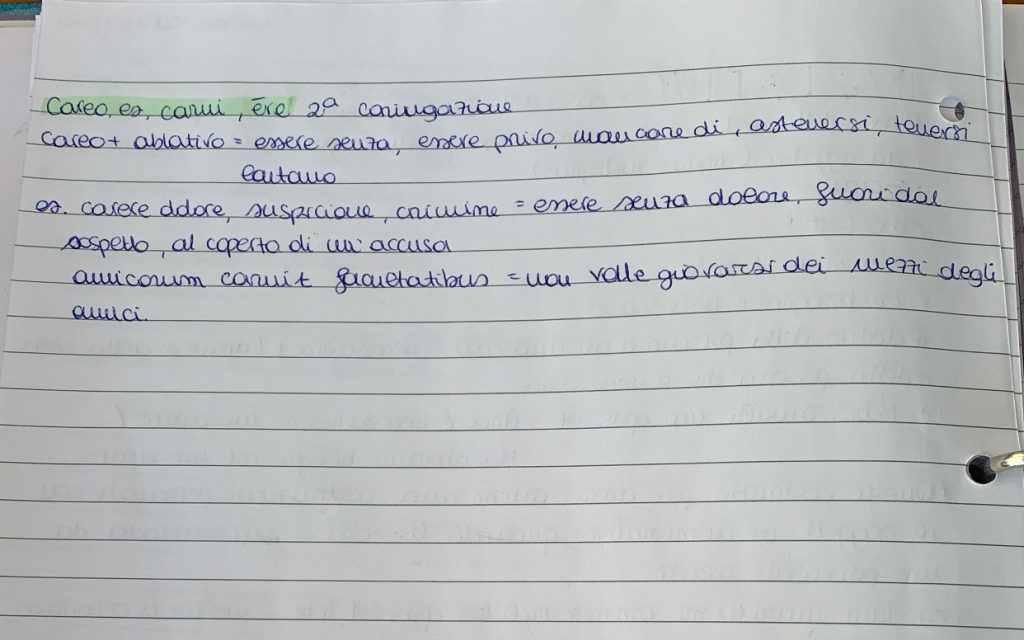 Careo, es, carui, ēre 2ª coniugazione
careo + ablativo = essere senza, essere privo, mancare di, astenersi, tenersi
lontano
es. carere dolore, suspicione, crimine = essere senza dolore, fuori dal
sospetto, al coperto di un'accusa
amicorum caruit facultatibus = non volle giovarsi dei mezzi degli
amici.